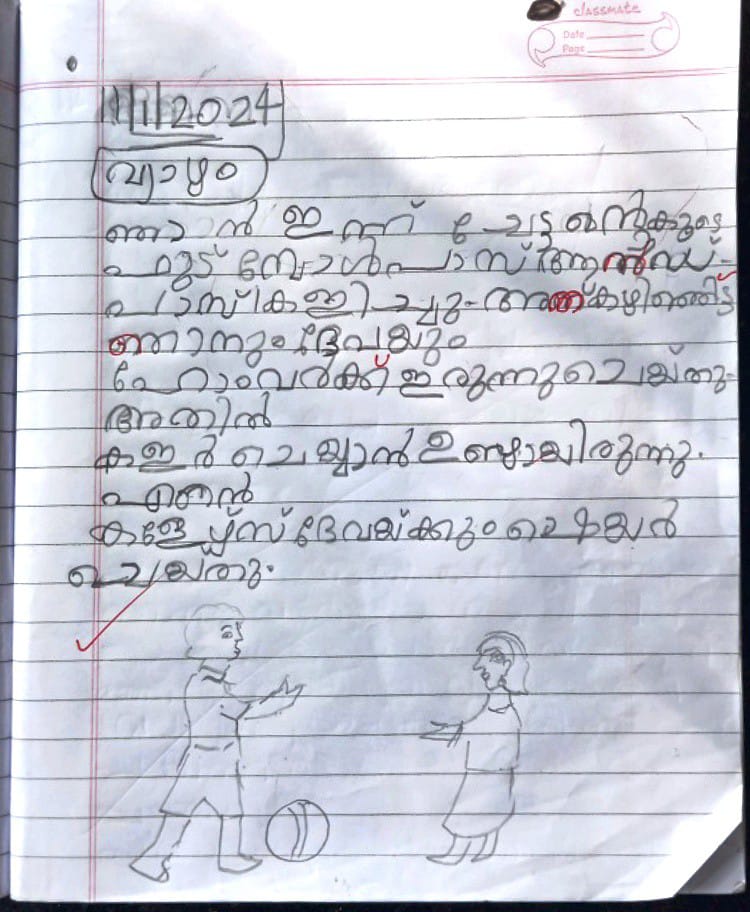 classmate
Date
Page
11/1/2024
വ്യാഴം
ഞാൻ ഇന്ന് ചേട്ടന്റെകൂടെ
ഫുട് ബോൾപാസ് ആൻഡ്
പാസ് കളിച്ചു. അത് കഴിഞ്ഞിട്ട്
ഞാനും ദേവയും
ഹോംവർക്ക് ഇരുന്നു ചെയ്തു.
അതിൽ
കളർ ചെയ്യാൻ ഉണ്ടായിരുന്നു.
എന്റെ
കളേഴ്സ് ദേവയ്ക്കും ഷെയർ
ചെയ്തു.